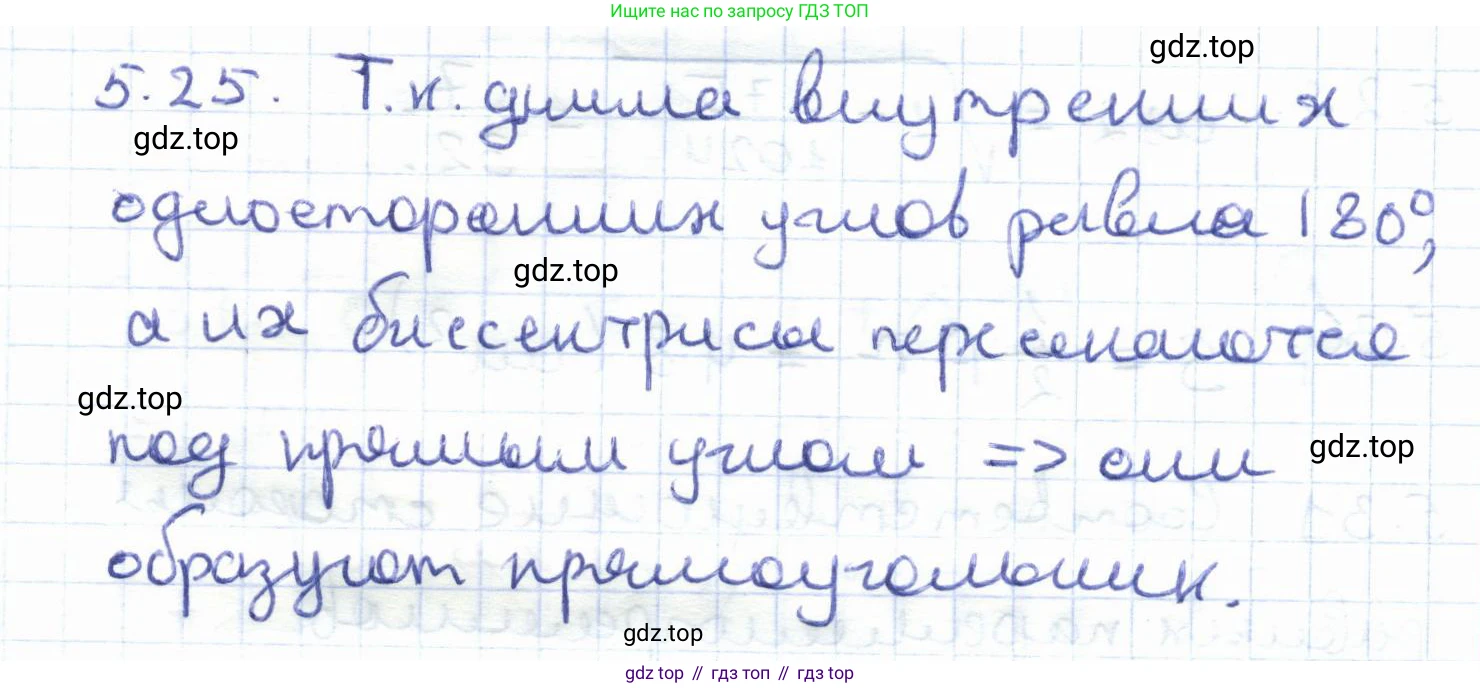 Ищите нас по запросу ГДЗ ТОП
gdz.top
5.25. Т.к. сумма внутренних
gdz.top
односторонних углов равна 180°,
gdz.top
а их биссектрисы пересекаются
gdz.top
под прямым углом => они
gdz.top
образуют прямоугольник.
gdz.top
gdz top // гдз топ // gdz top